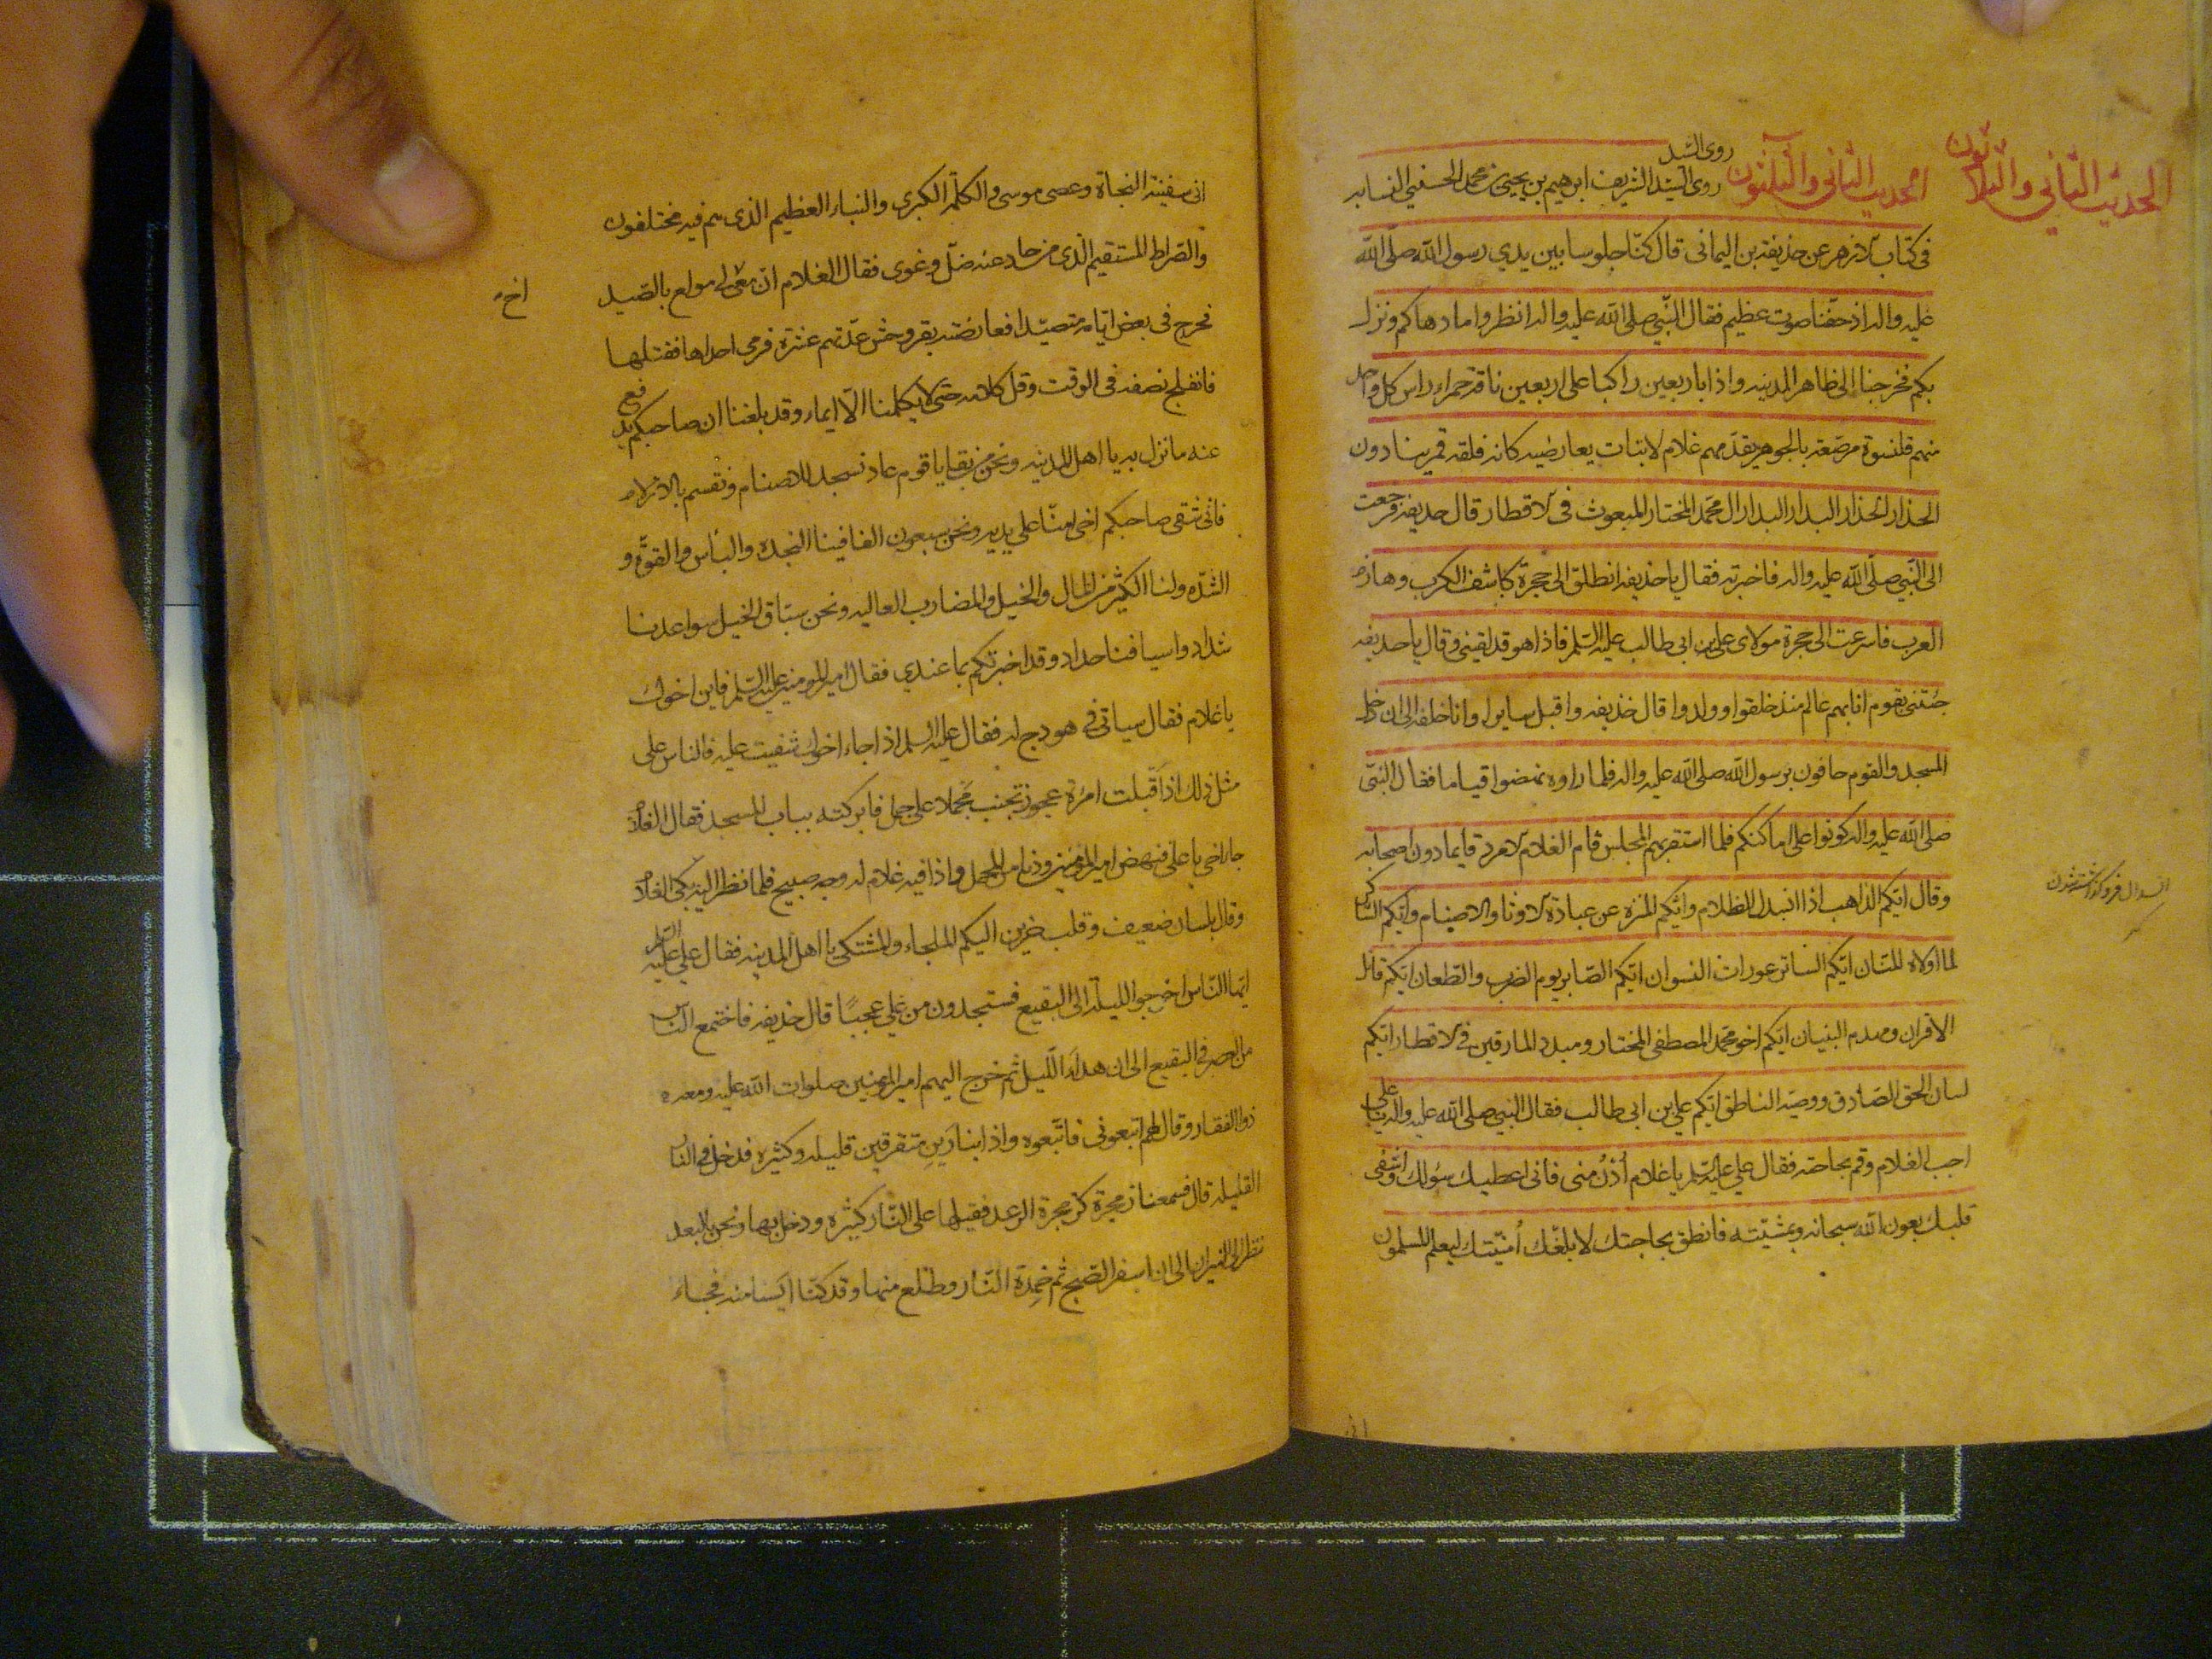 الحديث الثاني والثلاثون
الحديث الثاني والثلثون روى السيد الشريف ابرهيم بن يحيى بن محمد الحسيني النسابه
روى السيد
فى كتاب الازهر عن حذيفة بن اليمانى قال كنّا جلوسا بين يدي رسول الله صلّى الله
عليه واله اذ حفّنا صوت عظيم فقال النّبي صلى الله عليه واله انظروا ما دهاكم ونزل
بكم فخرجنا الى ظاهر المدينه واذا باربعين راكبا على اربعين ناقة حمراء راس كل واحد
منهم قلنسوة مرصّعة بالجوهر يقدّمهم غلام لا نبات بعارضيه كانه فلقة قمر ينادون
الحذار الحذار البدار البدار ال محمّد المختار المبعوث فى الاقطار قال حذيفه فرجعت
الى النّبي صلّى الله عليه واله فاخبرته فقال يا حذيفه انطلق الى حجرة كاشف الكرب وهازم
العرب فاسرعت الى حجرة مولاى على بن ابى طالب عليه السّلم فاذا هو قد لقينى وقال يا حذيفه
جئتنى بقوم انا بهم عالم منذ خلقوا وولدوا قال حذيفه واقبل سايرا وانا خلفه الى ان دخل
المسجد والقوم حافون برسول الله صلى الله عليه واله فلما راوه نهضوا قياما فقال النبّى
صلى الله عليه واله كونوا على اماكنكم فلما استقر بهم المجلس قام الغلام الامرد قايما دون اصحابه
وقال ايّكم الذاهب اذا انسدل الظلام وايّكم المنزه عن عبادة الاوثان والاصنام وايّكم الشاكر
لما اولاه المنّان ايّكم الساتر عورات النسوان ايّكم الصّابر يوم الضرب والطّعان ايّكم قاتل
الاقران ومهدم البنيان ايّكم اخو محمد المصطفى المختار ومبدد المارقين فى الاقطار ايّكم
لسان الحق الصّادق ووصيّه الناطق ايّكم على بن ابى طالب فقال النبي صلى الله عليه واله يا على
اجب الغلام وقم بحاجته فقال علي عليه السّلم يا غلام اُدْنُ منى فانى اعطيك سؤلك واشفى
قلبك بعون الله سبحانه وبمشيّته فانطق بحاجتك لابلغك اُمنيّتك ليعلم المسلمون
انى
انى سفينة النجاة وعصى موسى والكلمة الكبرى والنباء العظيم الذى هم فيه مختلفون
والصّراط المستقيم الذى من حاد عنه ضلّ وغوى فقال الغلام ان معى لى مولع بالصّيد
اخ
فخرج فى بعض ايامه متصيّدا فعارضته بقر وحش عدّتهم عشرة فرمى احداها فقتلها
فانفلج نصفه فى الوقت وقل كلامه حتى لا يكلمنا الّا ايماء وقد بلغنا ان صاحبكم يدفع
عنه ما نزل به يا اهل المدينه ونحن من بقايا قوم عاد نسجد للاصنام ونقسم بالازلام
فانى شفى صاحبكم اخى امنّا على يديه ونحن سبعون الفا فينا النجدة والباس والقوّة و
الشدّه ولنا الكثير من المال والخيل والمضارب العاليه ونحن سبّاق الخيل سواعدنا
شداد واسيافنا حداد وقد اخبرتكم بما عندي فقال امير المومنين عليه السّلم فاين اخوك
يا غلام فقال سياتى فى هودج له فقال عليه السلم اذا جاء اخوك شفيت عليه فالناس على
مثل ذلك اذ اَقبلت امرَة عجوز تجنب مَحملا على جمل فابركته بباب المسجد فقال الغلام
جا اخى يا على فنهض امير المؤمنين ودنا من المحمل واذا فيه غلام له وجه صبيح فلما نظر اليه بكى الغلام
وقال بلسان ضعيف وقلب حزين اليكم الملجاء والمشتكى يا اهل المدينه فقال على عليه السّلم
ايها النّاس اخرجوا الليلة الى البقيع فستجدون من على عجبًا قال حذيفه فاختمع النّاس
من العصر فى البقيع الى ان هدأ اللّيل ثم خرج اليهم امير المؤمنين صلوات الله عليه ومعه
ذوالفقار وقال لهم اتبعونى فاتّبعوه واذا بنارَين متفرقين قليله وكثيره فدخل فى النار
القليله قال فسمعنا زمجرة كزمجرة الرعد فقبلها على النّار كثيره ودخل بها ونحن بالبعد
ننظر الى النيران الى ان اسفر الصّبح ثم خمدة النّار وطلع منها وقد كنّا ايسنا منه فجاء